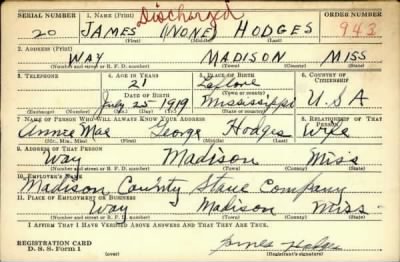 Discharged
SERIAL NUMBER 1. NAME (Print) ORDER NUMBER
20 JAMES (NONE) HODGES 943
(First) (Middle) (Last)
2. ADDRESS (Print)
WAY MADISON MISS
(Number and street or R. F. D. number) (Town) (County) (State)
3. TELEPHONE 4. AGE IN YEARS 5. PLACE OF BIRTH 6. COUNTRY OF CITIZENSHIP
21 Leflore
DATE OF BIRTH (Town or county)
July 25 1919 Mississippi U.S.A
(Exchange) (Number) (Mo.) (Day) (Yr.) (State or country)
7. NAME OF PERSON WHO WILL ALWAYS KNOW YOUR ADDRESS 8. RELATIONSHIP OF THAT PERSON
Annie Mae George Hodges Wife
(Mr., Mrs., Miss) (First) (Middle) (Last)
9. ADDRESS OF THAT PERSON
Way Madison Miss
(Number and street or R. F. D. number) (Town) (County) (State)
10. EMPLOYER'S NAME
Madison County Stave Company
11. PLACE OF EMPLOYMENT OR BUSINESS
Way Madison Miss
(Number and street or R. F. D. number) (Town) (County) (State)
I AFFIRM THAT I HAVE VERIFIED ABOVE ANSWERS AND THAT THEY ARE TRUE.
REGISTRATION CARD
D. S. S. Form 1 (over) James Hodges
(Registrant's signature)